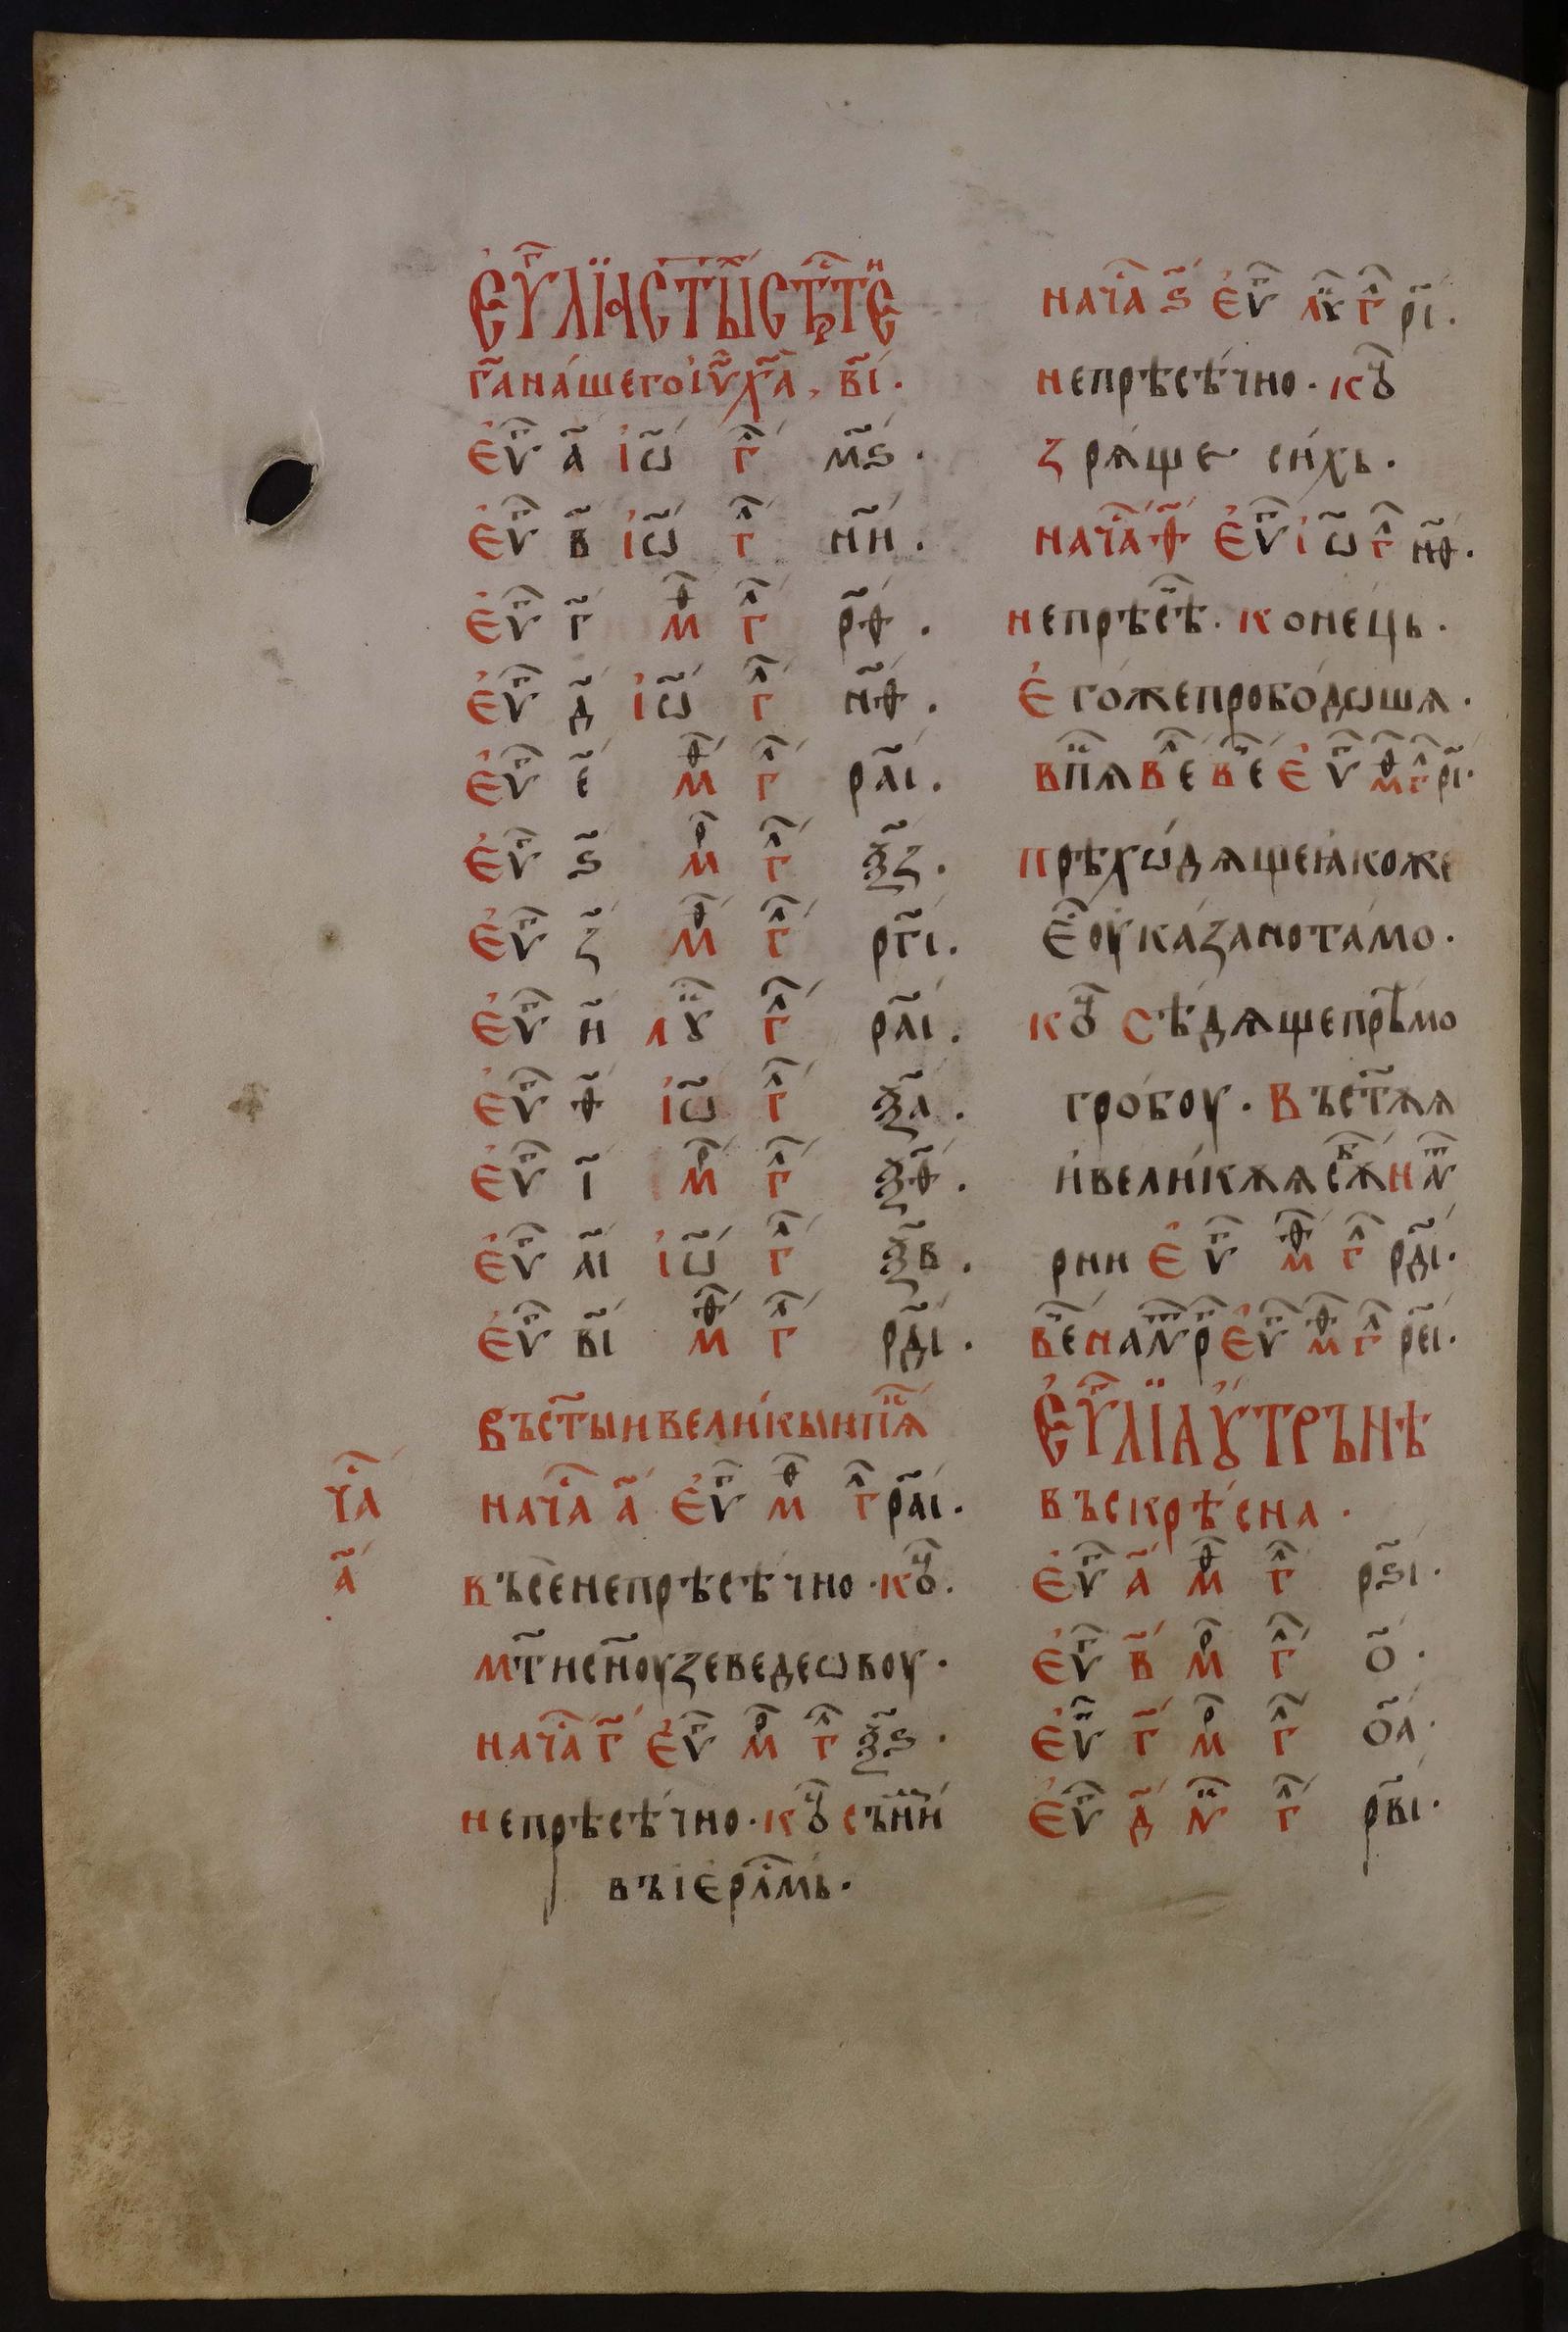 Е҆ѵⷢ҇лїи ст҃ыⷯ стрⷭ҇теⷩ҇
г҃а на́шего і҆ѵ҃ х҃а, в҃і.
Е҆ѵⷢ҇ а҃ і҆ѡ҃ гⷧ҇ м҃ѕ.
Е҆ѵⷢ҇ в҃ і҆ѡ҃ гⷧ҇ н҃и.
Е҆ѵⷢ҇ г҃ мⷴ҇ гⷧ҇ р҃ѳ.
Е҆ѵⷢ҇ д҃ і҆ѡ҃ гⷧ҇ н҃ѳ.
Е҆ѵⷢ҇ е҃ мⷴ҇ гⷧ҇ ра҃і.
Е҆ѵⷢ҇ ѕ҃ мⷬ҇ гⷧ҇ ѯ҃з.
Е҆ѵⷢ҇ з҃ мⷴ҇ гⷧ҇ рг҃і.
Е҆ѵⷢ҇ и҃ лꙋⷦ҇ гⷧ҇ ра҃і.
Е҆ѵⷢ҇ ѳ҃ і҆ѡ҃ гⷧ҇ ѯ҃а.
Е҆ѵⷢ҇ і҃ мⷬ҇ гⷧ҇ ѯ҃ѳ.
Е҆ѵⷢ҇ а҃і і҆ѡ҃ гⷧ҇ ѯ҃в.
Е҆ѵⷢ҇ в҃і мⷴ҇ гⷧ҇ рд҃і.
Въ ст҃ыи вели́кыи пⷮ҇ѧ
чаⷭ҇
а҃
На чаⷭ҇ а҃ Е҆ѵⷢ҇ мⷴ҇ гⷧ҇ ра҃і.
въ се непрѣсѣ́чно. коⷰ҇.
мт҃и сн҃оу зеведеѡвоу.
На чаⷭ҇ г҃ Е҆ѵⷢ҇ мⷬ҇ гⷧ҇ ѯ҃ѕ.
непрѣсѣ́чно. коⷰ҇ съ ни́
въ іерⷭ҇лмь.
На чаⷭ҇ ѕ҃ Е҆ѵⷢ҇ лꙋⷦ҇ гⷧ҇ р҃і.
непрѣсѣ́чно. коⷰ҇
зрѧ́ще си́хь.
На чаⷭ҇ ѳ҃ Е҆ѵⷢ҇ і҆ѡ҃ гⷧ҇ н҃ѳ.
непрѣсѣⷱ҇. коне́ць.
Е҆го́же пробо́дѡшѧ.
В пⷮ҇ѧ в веⷧ҇ веⷱ҇ Е҆ѵⷢ҇ мⷴ҇ гⷧ҇ р҃і.
прѣхѡ́дѧще ꙗ҆коже
Еⷭ҇ оу҆ка́зано та́мо.
коⷰ҇ Сѣ́дѧще прѣ́мо
гро́боу. Въ ст҃ѫѧ
и҆ вели́кѫѧ сѫⷠ҇ на лѵⷮ҇
рии Е҆ѵⷢ҇ мⷴ҇ гⷧ҇ рд҃і.
Веⷱ҇ на лѵⷮ҇рⷢ҇ Е҆ѵⷢ҇ мⷴ҇ гⷧ҇ ре҃і.
Е҆ѵⷢ҇лїа ꙋ҆трънѣ
въскрⷭ҇ѣ́сна.
Е҆ѵⷢ҇ а҃ мⷴ҇ гⷧ҇ рѕ҃і.
Е҆ѵⷢ҇ в҃ мⷬ҇ гⷧ҇ о҃.
Е҆ѵⷢ҇ г҃ мⷬ҇ гⷧ҇ о҃а.
Е҆ѵⷢ҇ д҃ лꙋⷦ҇ гⷧ҇ рв҃і.